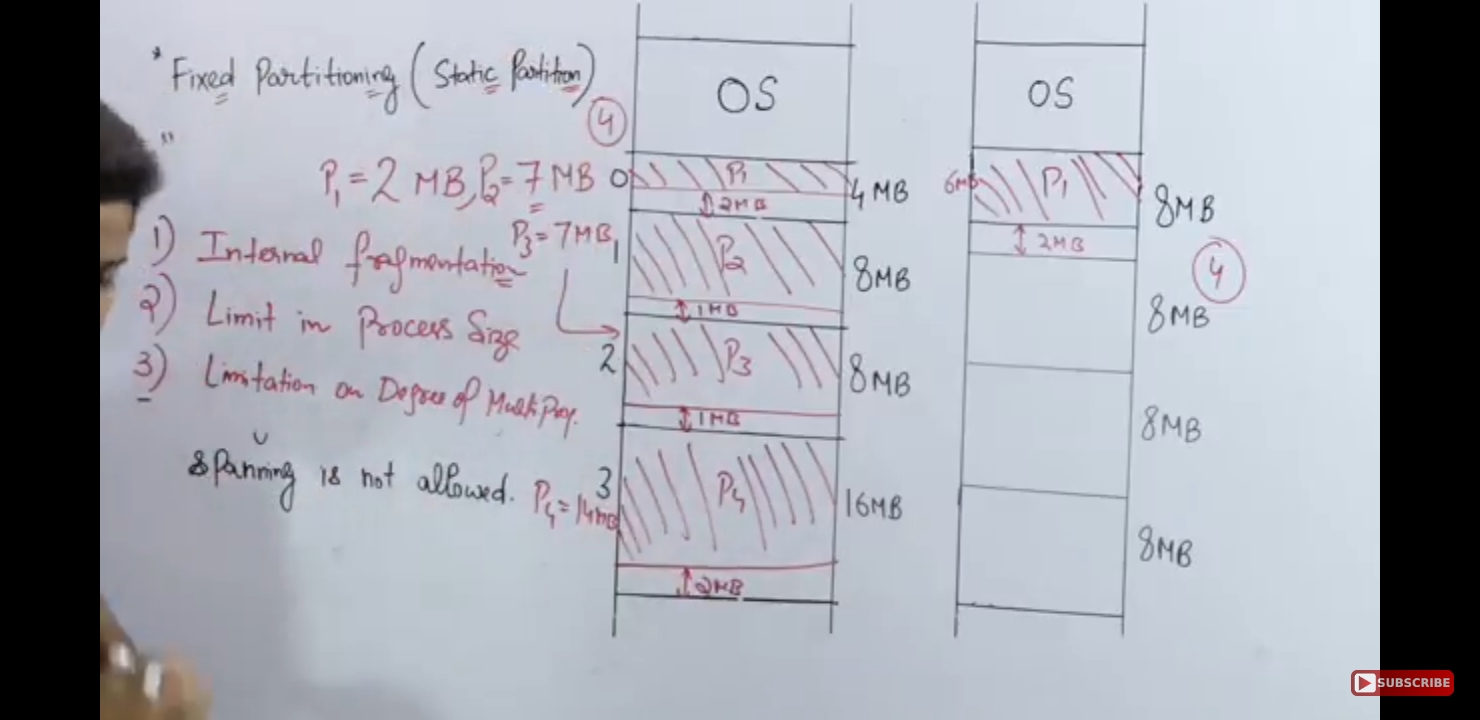 * Fixed Partitioning (Static Partition)
"
P₁ = 2 MB, P₂ = 7 MB
P₃ = 7MB
1) Internal fragmentation
2) Limit in Process Size
3) Limitation on Degree of Multi Prog.
spanning is not allowed.
P₄ = 14MB
4
OS
0 P₁ 4 MB
2MB
1 P₂ 8MB
1MB
2 P₃ 8MB
1MB
3 P₄ 16MB
2MB
OS
6MB P₁ 8MB
2MB
4
8MB
8MB
8MB
SUBSCRIBE